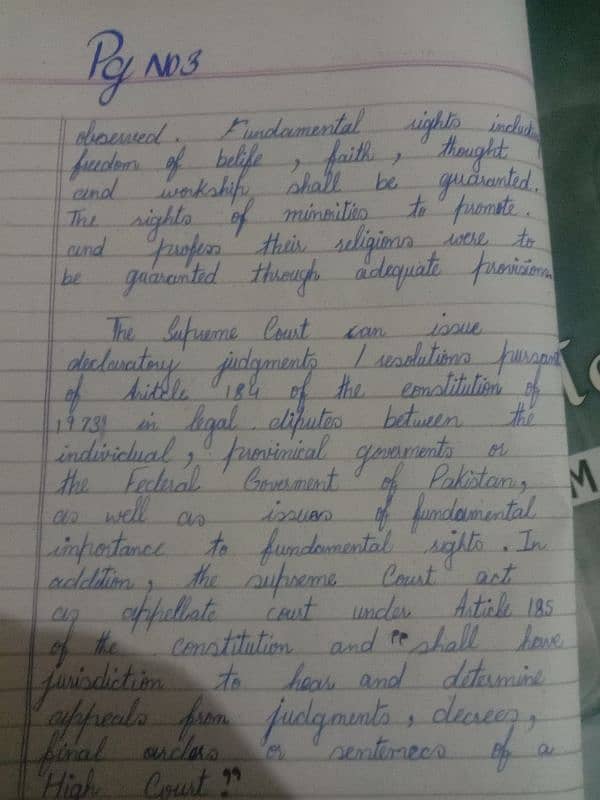 Pg No 3
observed. Fundamental rights including
freedom of belife, faith, thought
and workship shall be guaranted.
The rights of minorities to promote.
and profess their religions were to
be guaranted through adequate provisions
The Supreme Court can issue
declaratory judgments / resolutions pursuant
of Aritcle 184 of the constitution of
1973, in legal diputes between the
individual, provinical goverments or
the Federal Goverment of Pakistan,
as well as issues of fundamental
importance to fundamental rights. In
addtion, the supreme Court act
as appellate court under Article 185
of the constitution and "shall have
jurisdiction to hear and determine
appeals from judgments, decrees,
final orders or sentences of a
High Court"
M